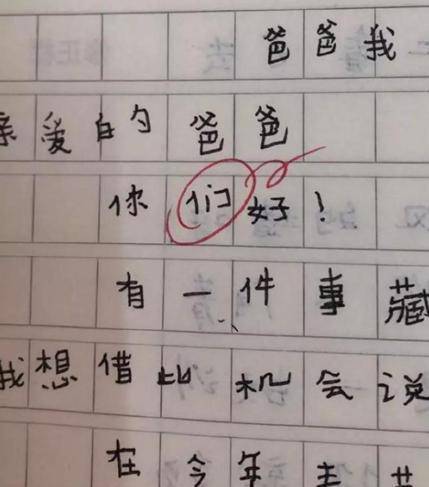 爸爸我
亲爱的爸爸
你们好！
有一件事藏
我想借此机会说
在今年